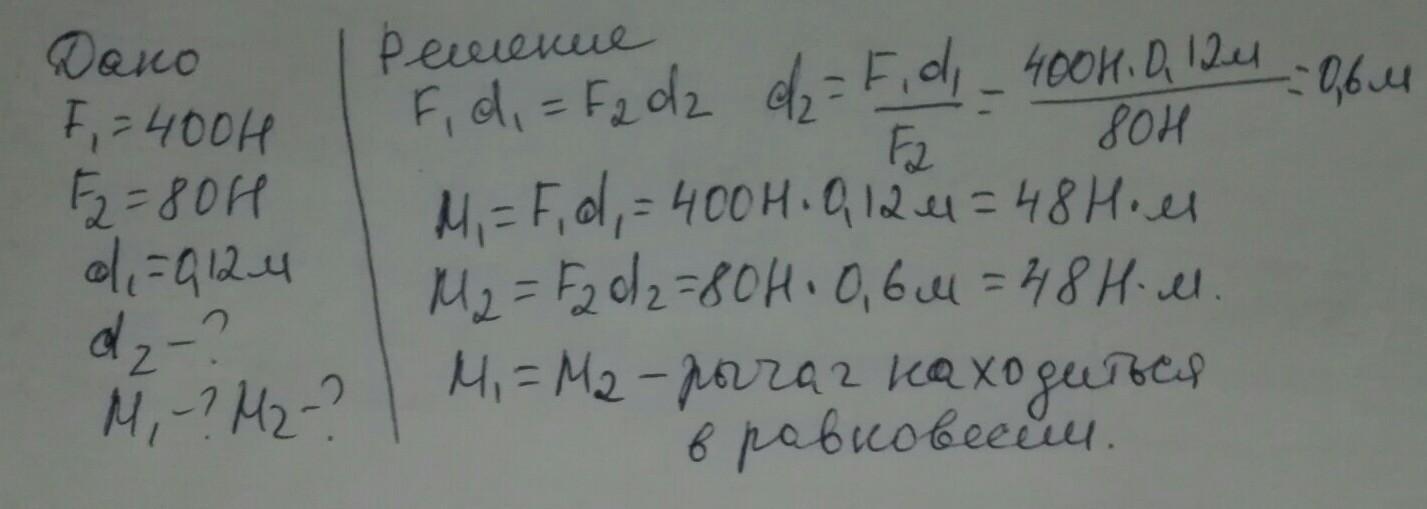 Дано
F₁ = 400Н
F₂ = 80Н
d₁ = 0,12м
d₂ - ?
M₁ - ? M₂ - ?
Решение
F₁d₁ = F₂d₂ d₂ = F₁d₁/F₂ = 400Н·0,12м/80Н = 0,6м
M₁ = F₁d₁ = 400Н·0,12м = 48Н·м
M₂ = F₂d₂ = 80Н·0,6м = 48Н·м.
M₁ = M₂ – рычаг находиться
в равновесии.